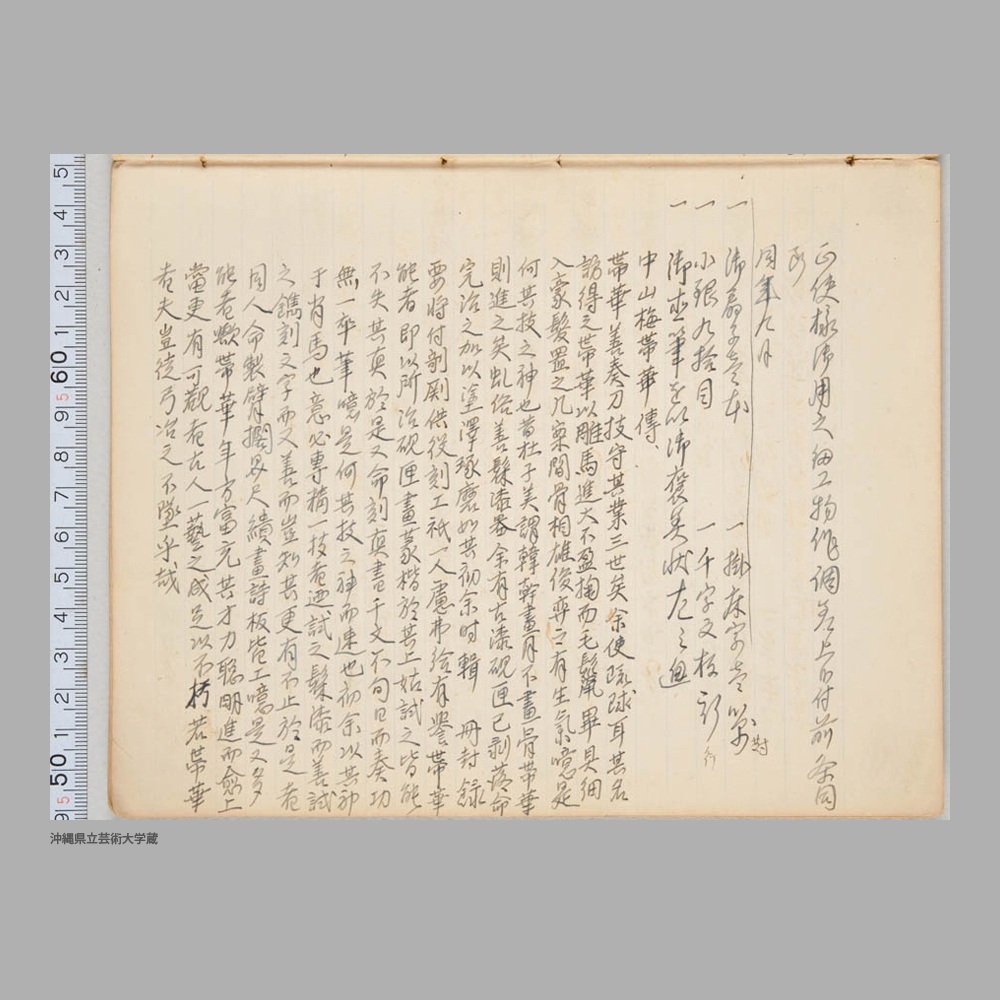 正使様御用之細工物作調差上候付前条同
断
同年九月
一 御扇子壱本 一 掛床字壱対
一 小銀九拾目 一 千字文板
一 御直筆を以御褒美状左之通
中山梅帯華傳
帯華善奏刀技守其業三世矣余使琉球耳其名
訪得之帯華以雕馬進大不盈掬而毛鬣畢具細
入豪髪置之几案間骨相雄俊奕々有生氣噫是
何其技之神也昔杜子美謂韓幹畫肖不畫骨帯華
則進之矣虬俗善髹漆器余有古漆硯匣已剥落命
完治之加以塗澤琢磨如其初余時輯 冊封録
要将付剞劂供役刻工祇一人慮弗給有譽帯華
能者即以所治硯匣畫篆楷於其上姑試之皆能
不失其真於是又命刻真書千文不旬日而奏功
無一卒筆噫是何其技之神而速也初余以其神
于肖馬也意必專精一技者迺試之髹漆而善試
之鐫刻文字而又善而豈知其更有不止於是者
因人命製臂擱界尺繢畫詩板皆工噫是又多
能者歟帯華年方富充其才力聡明進而愈上
當更有可觀者古人一藝之成足以不朽若帯華
者夫豈徒弓冶之不墜乎哉
沖縄県立芸術大学蔵